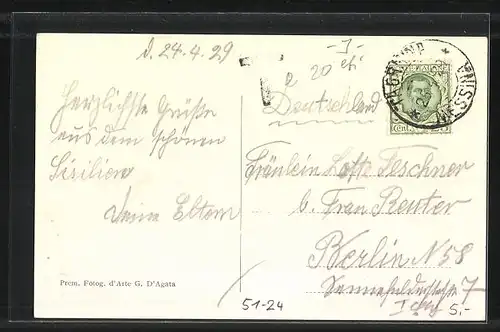 d. 24.4.29
- I -
a 20 cti
Deutschland
TAORMINA
MESSINA
Cent. 25
Herzlichste Grüße
aus dem schönen
Sizilien
Deine Eltern
Fräulein Lotte Teschner
b. Frau Reuter
Berlin N 58
7
I
Prem. Fotog. d'Arte G. D'Agata
51-24
5,-